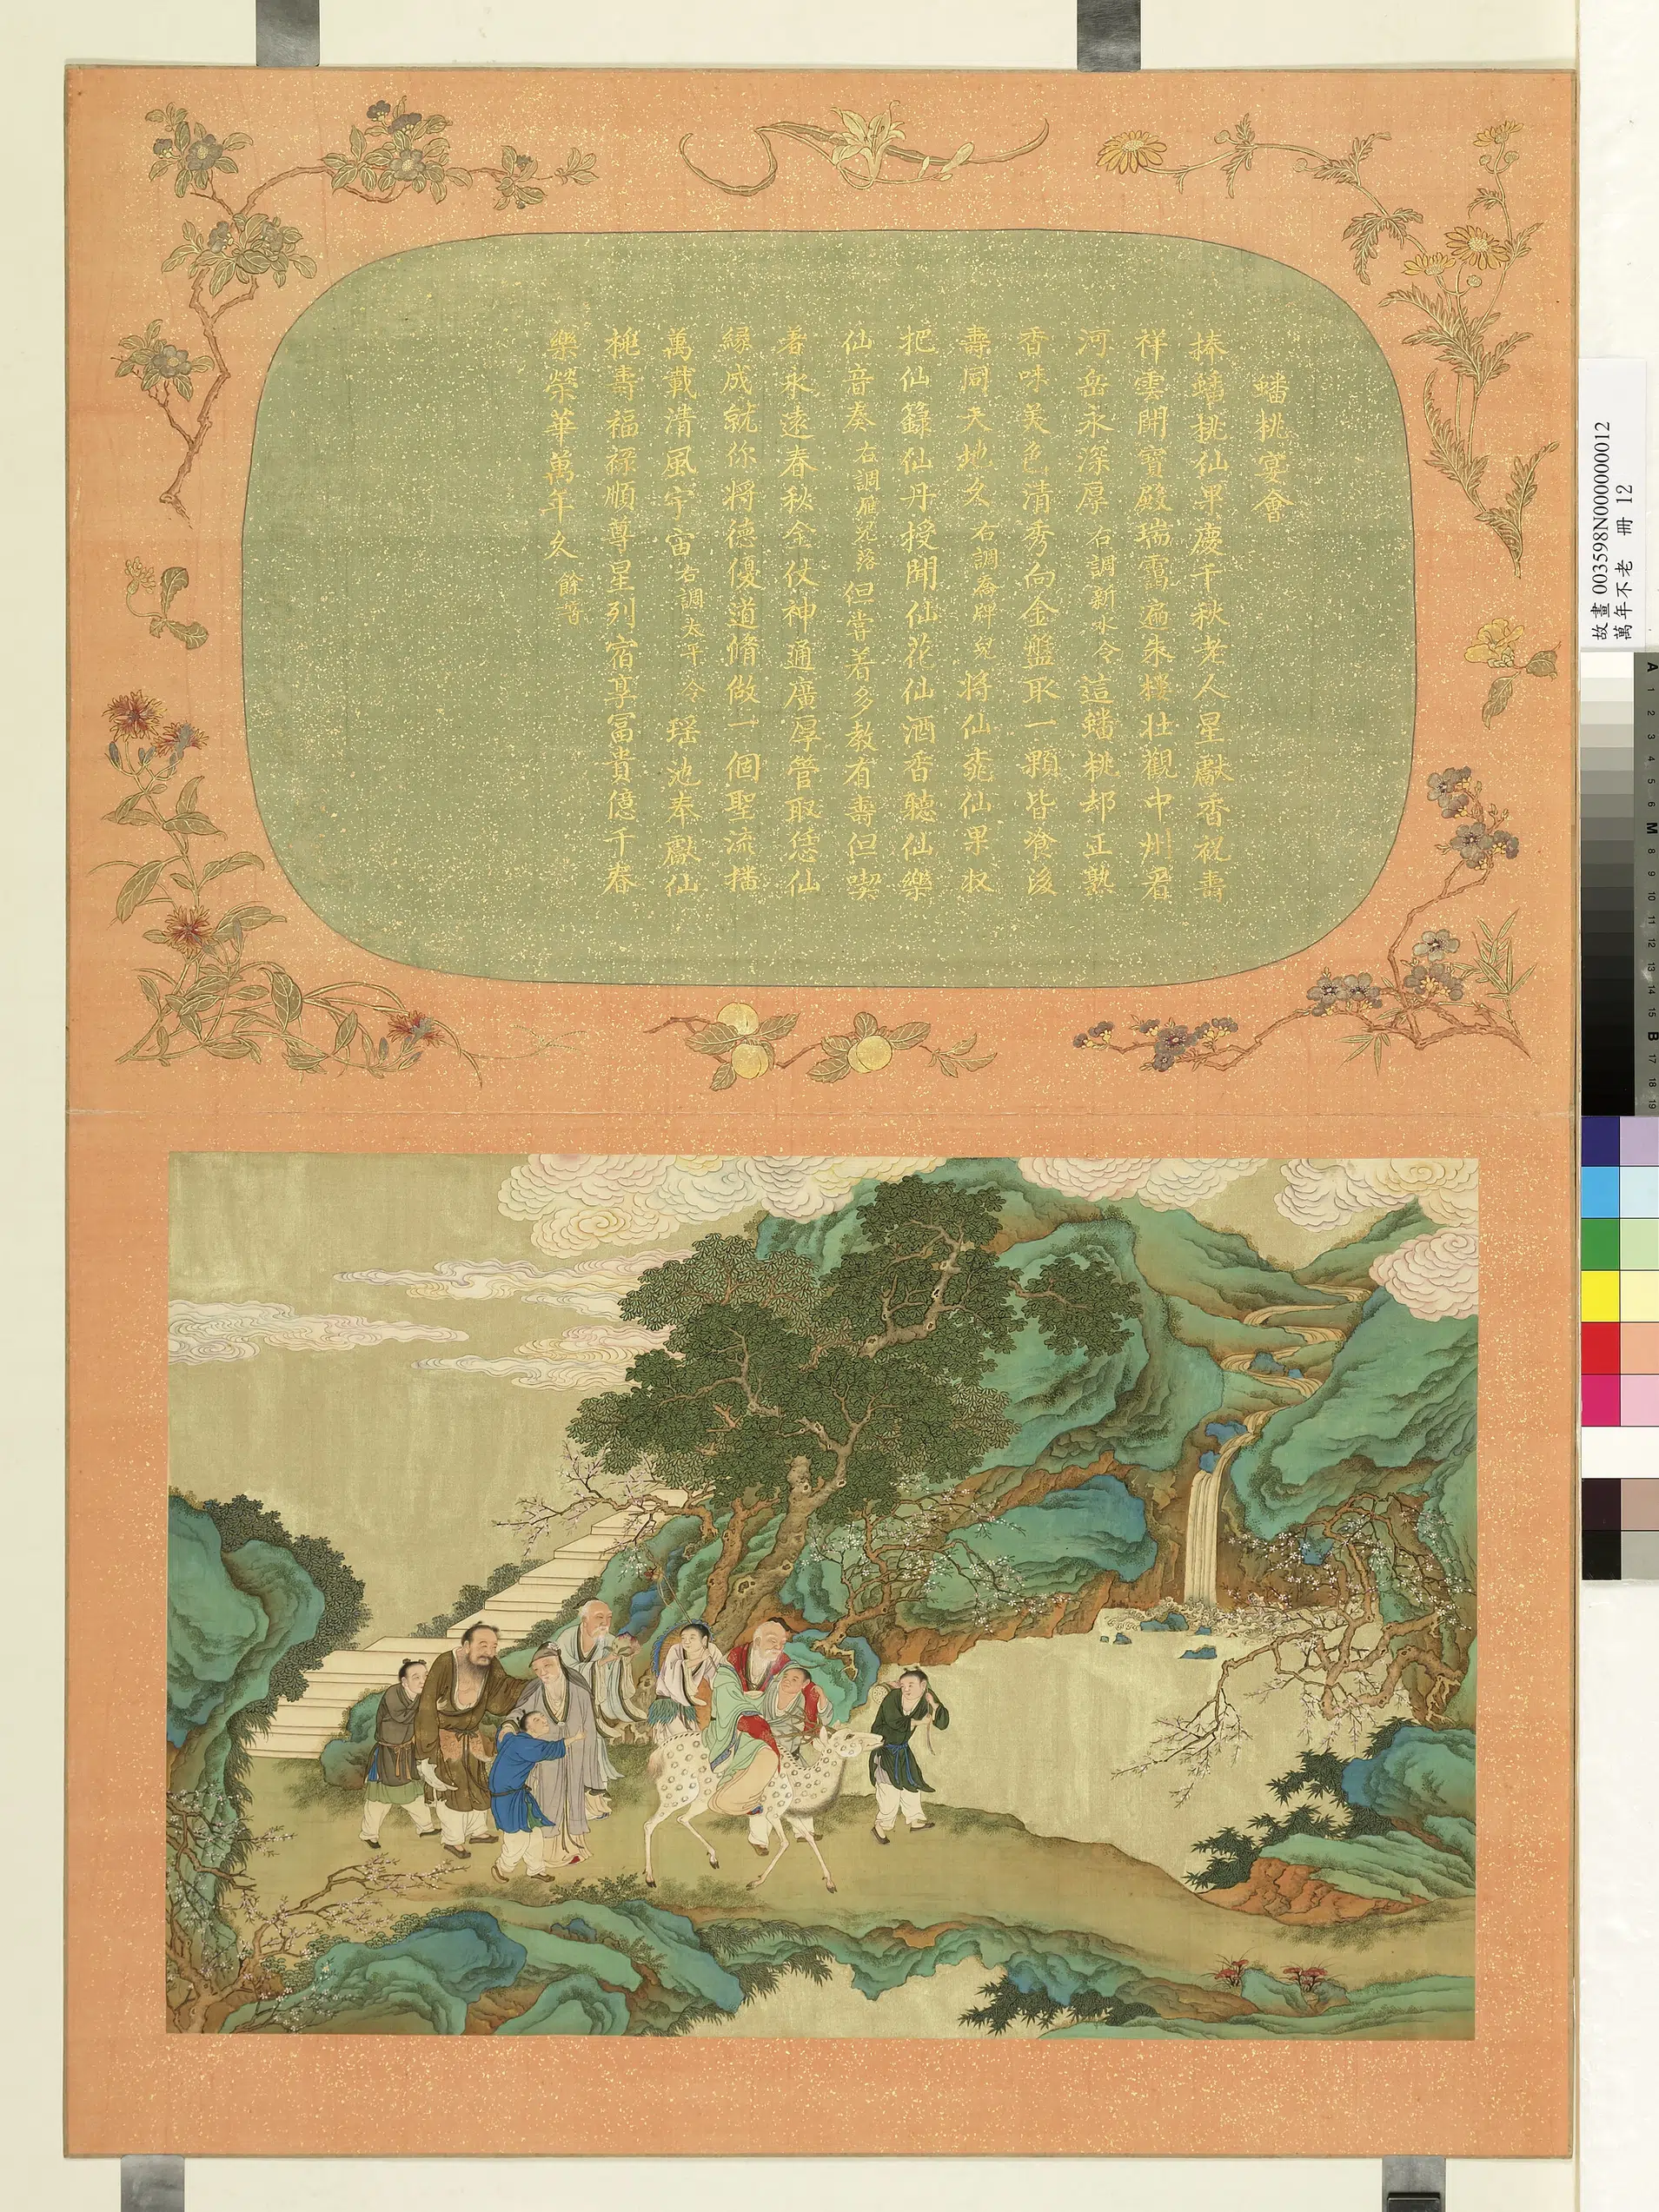 蟠桃宴會
捧蟠桃仙果慶千秋老人星獻香祝壽
祥雲開寶殿瑞靄遍朱樓壯觀中州看
河岳永深厚右調新水令這蟠桃却正熟
香味美色清秀向金盤取一顆皆飡後
壽同天地久右調喬牌兒將仙桃仙果收
把仙籙仙丹授聞仙花仙酒香聽仙樂
仙音奏右調雁兒落但嘗着多教有壽但喫
着永遠春秋全仗神通廣厚管取恁仙
緣成就你將德優道脩做一個聖流播
萬載清風宇宙右調太平令瑶池奉獻仙
桃壽福祿順尊星列宿享冨貴億千春
樂榮華萬年久餘音
故畫003598N000000012
萬年不老 冊 12
A 1 2 3 4 5 6 M 8 9 10 11 12 13 14 15 B 17 18 19